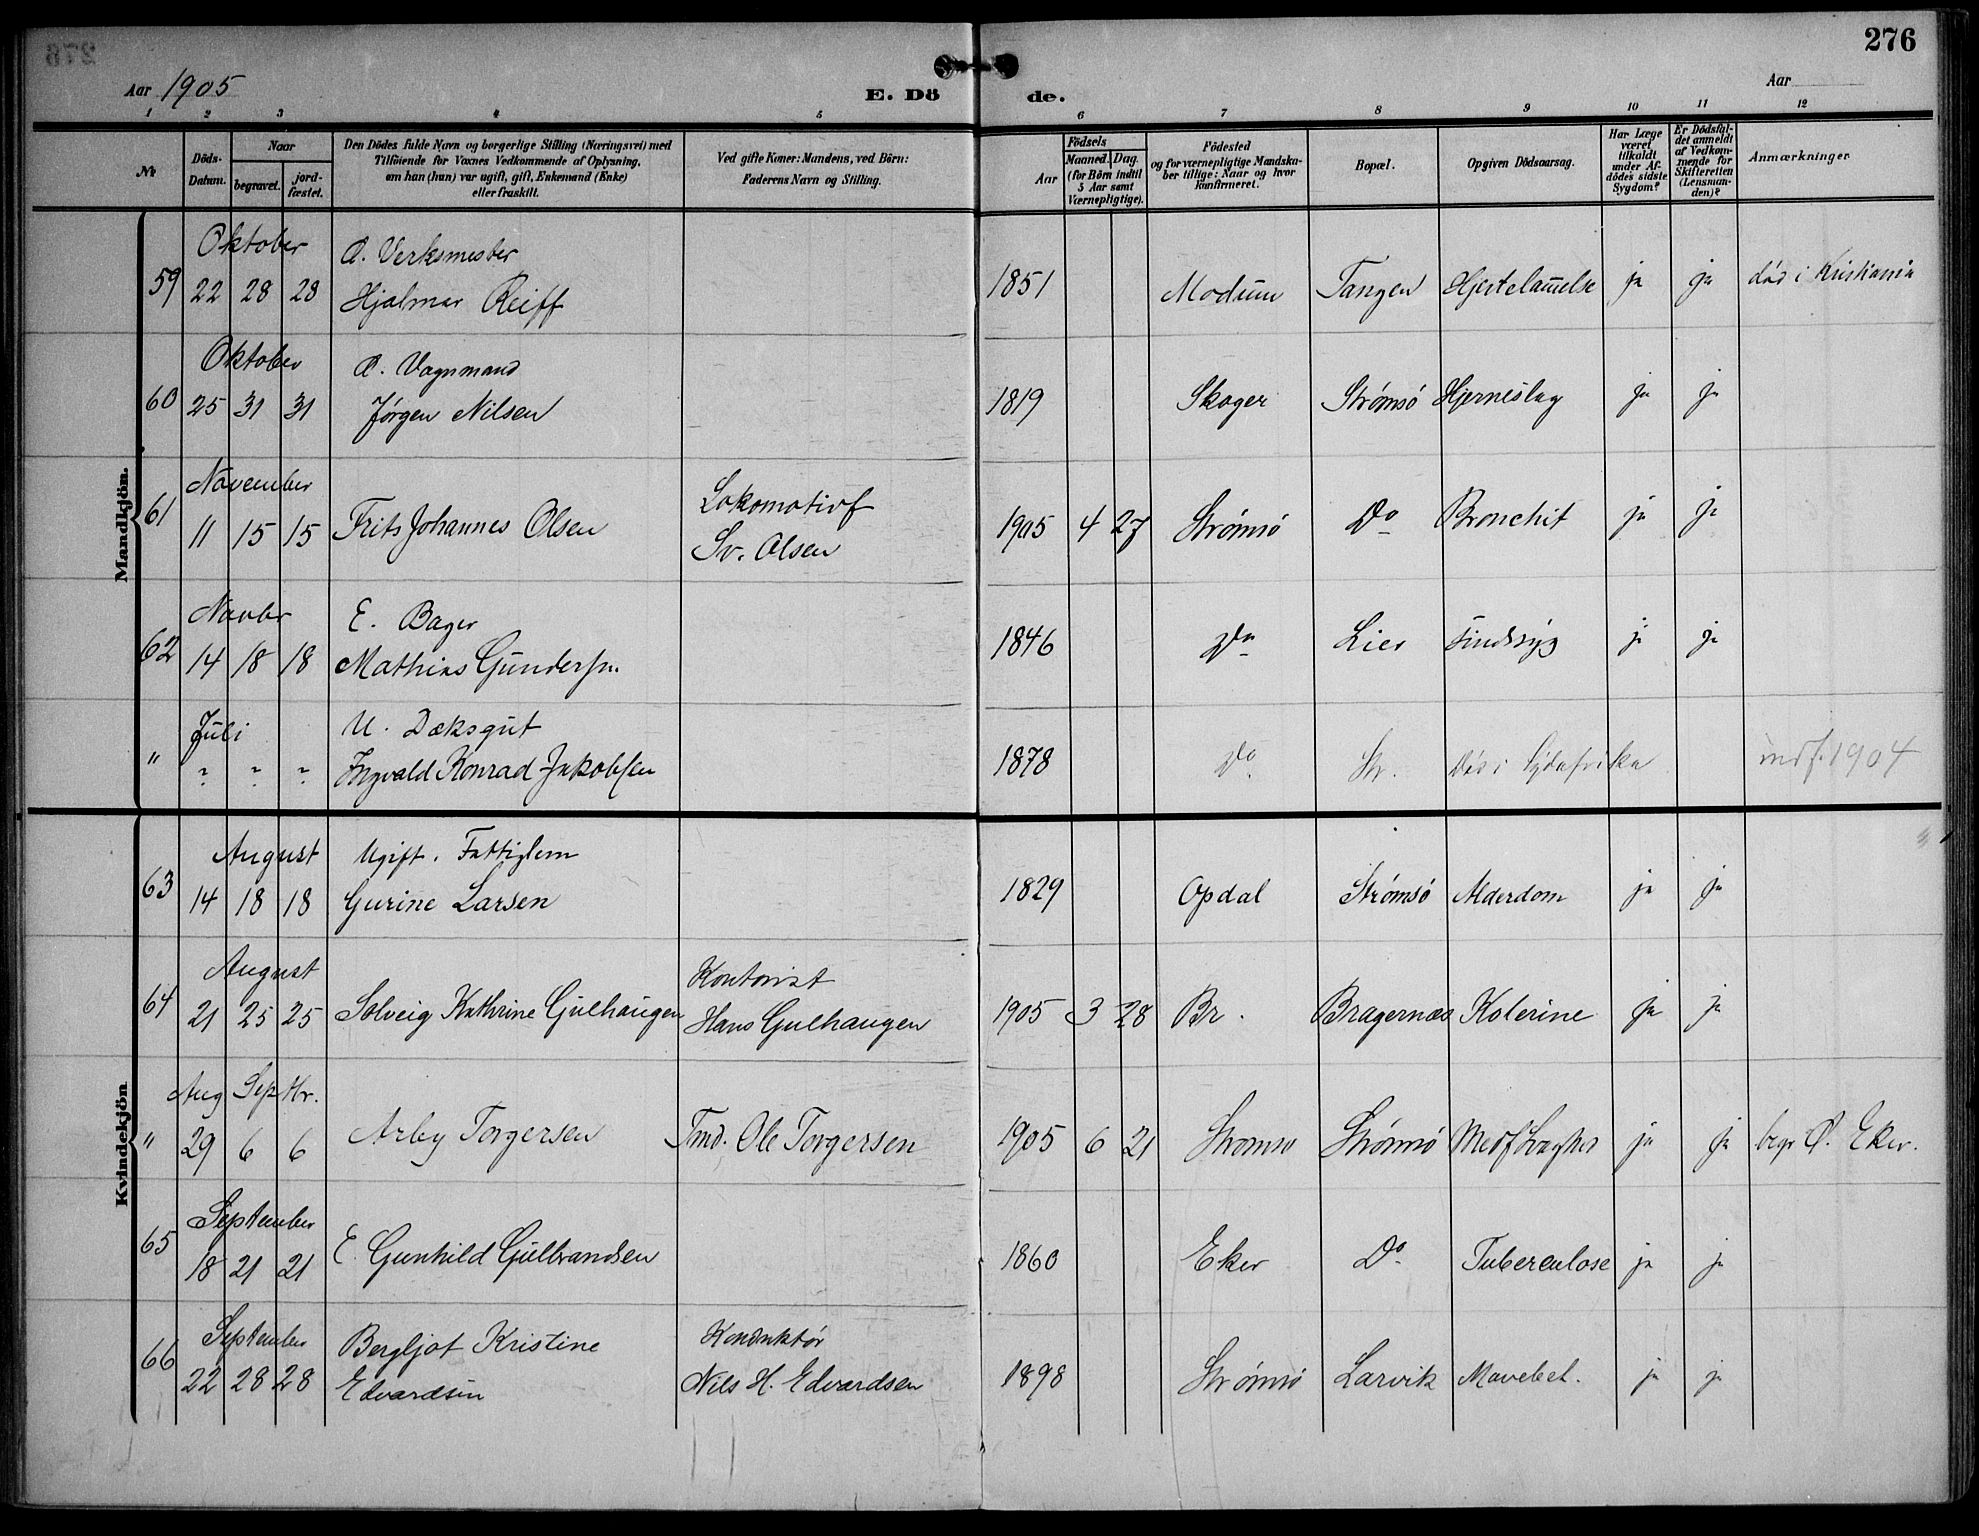 276
Aar 1905
E. Dö de.
Aar
1 2 3 4 5 6 7 8 9 10 11 12
Nr.
Döds-Datum.
Naar
begravet.
jord-fæstet.
Den Dödes fulde Navn og borgerlige Stilling (Næringsvei) med
Tilföiende for Voxnes Vedkommende af Oplysning,
om han (hun) var ugift, gift, Enkemand (Enke)
eller fraskilt.
Ved gifte Koner: Mandens, ved Börn:
Faderens Navn og Stilling.
Födsels
Aar
Maaned. Dag.
(for Börn indtil
5 Aar samt
Værnepligtige).
Födested
og for værnepligtige Mandska-
ber tillige: Naar og hvor
konfirmeret.
Bopæl.
Opgiven Dödsaarsag.
Har Læge
været
tilkaldt
under Af-
dödes sidste
Sygdom?
Er Dödsfal-
det anmeldt
af Vedkom-
mende for
Skifteretten
(Lensman-
den)?
Anmærkninger
Mandkjön.
Oktober
Verksmester
59 22 28 28 Hjalmar Reiff 1851 Modum Tangen Hjertelammelse ja ja död i Kristiania
Oktober
Vognmand
60 25 31 31 Jørgen Nilsen 1819 Skoger Strømsö Hjerneslag ja ja
November Lokomotivf
61 11 15 15 Frits Johannes Olsen Sv. Olsen 1905 4 27 Strømsö Do Bronchit ja ja
Novbr E. Bager
62 14 18 18 Mathias Gundersen 1846 Do Lier Sindssyg ja ja
Juli U. Dæksgut
" - - - Ingvald Konrad Jakobsen 1878 Do Str. Död i Sydafrika indf. 1904
Kvindekjön
August Ugift. Fattiglem
63 14 18 18 Gurine Larsen 1829 Opdal Strømsö Alderdom ja ja
August Kontorist
64 21 25 25 Solveig Kathrine Gulhaugen Hans Gulhaugen 1905 3 28 Br. Bragernæs Kolerine ja ja
Aug Septbr.
" 29 6 6 Arby Torgersen Tmd. Ole Torgersen 1905 6 21 Stromsø Strømsö ja ja begr Ø. Eker.
September
65 18 21 21 E. Gunhild Gulbrandsen 1860 Eker Do Tuberculose ja ja
September Bergljot Kristine Konduktör
66 22 28 28 Edvardsen Nils H. Edvardsen 1898 Strømsö Larvik Mavebet. ja ja